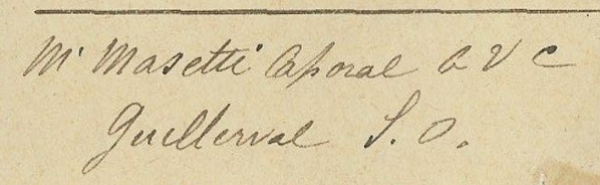 Mr Masetti Caporal G V C
Guillerval S. O.